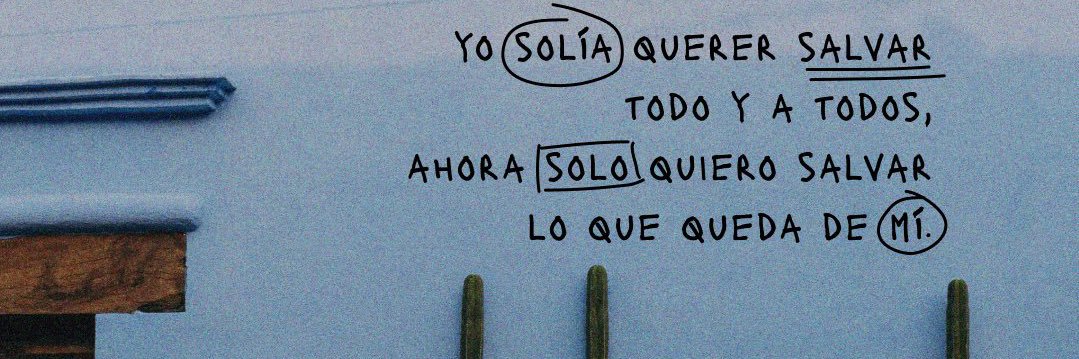 YO SOLÍA QUERER SALVAR
TODO Y A TODOS,
AHORA SOLO QUIERO SALVAR
LO QUE QUEDA DE MÍ.